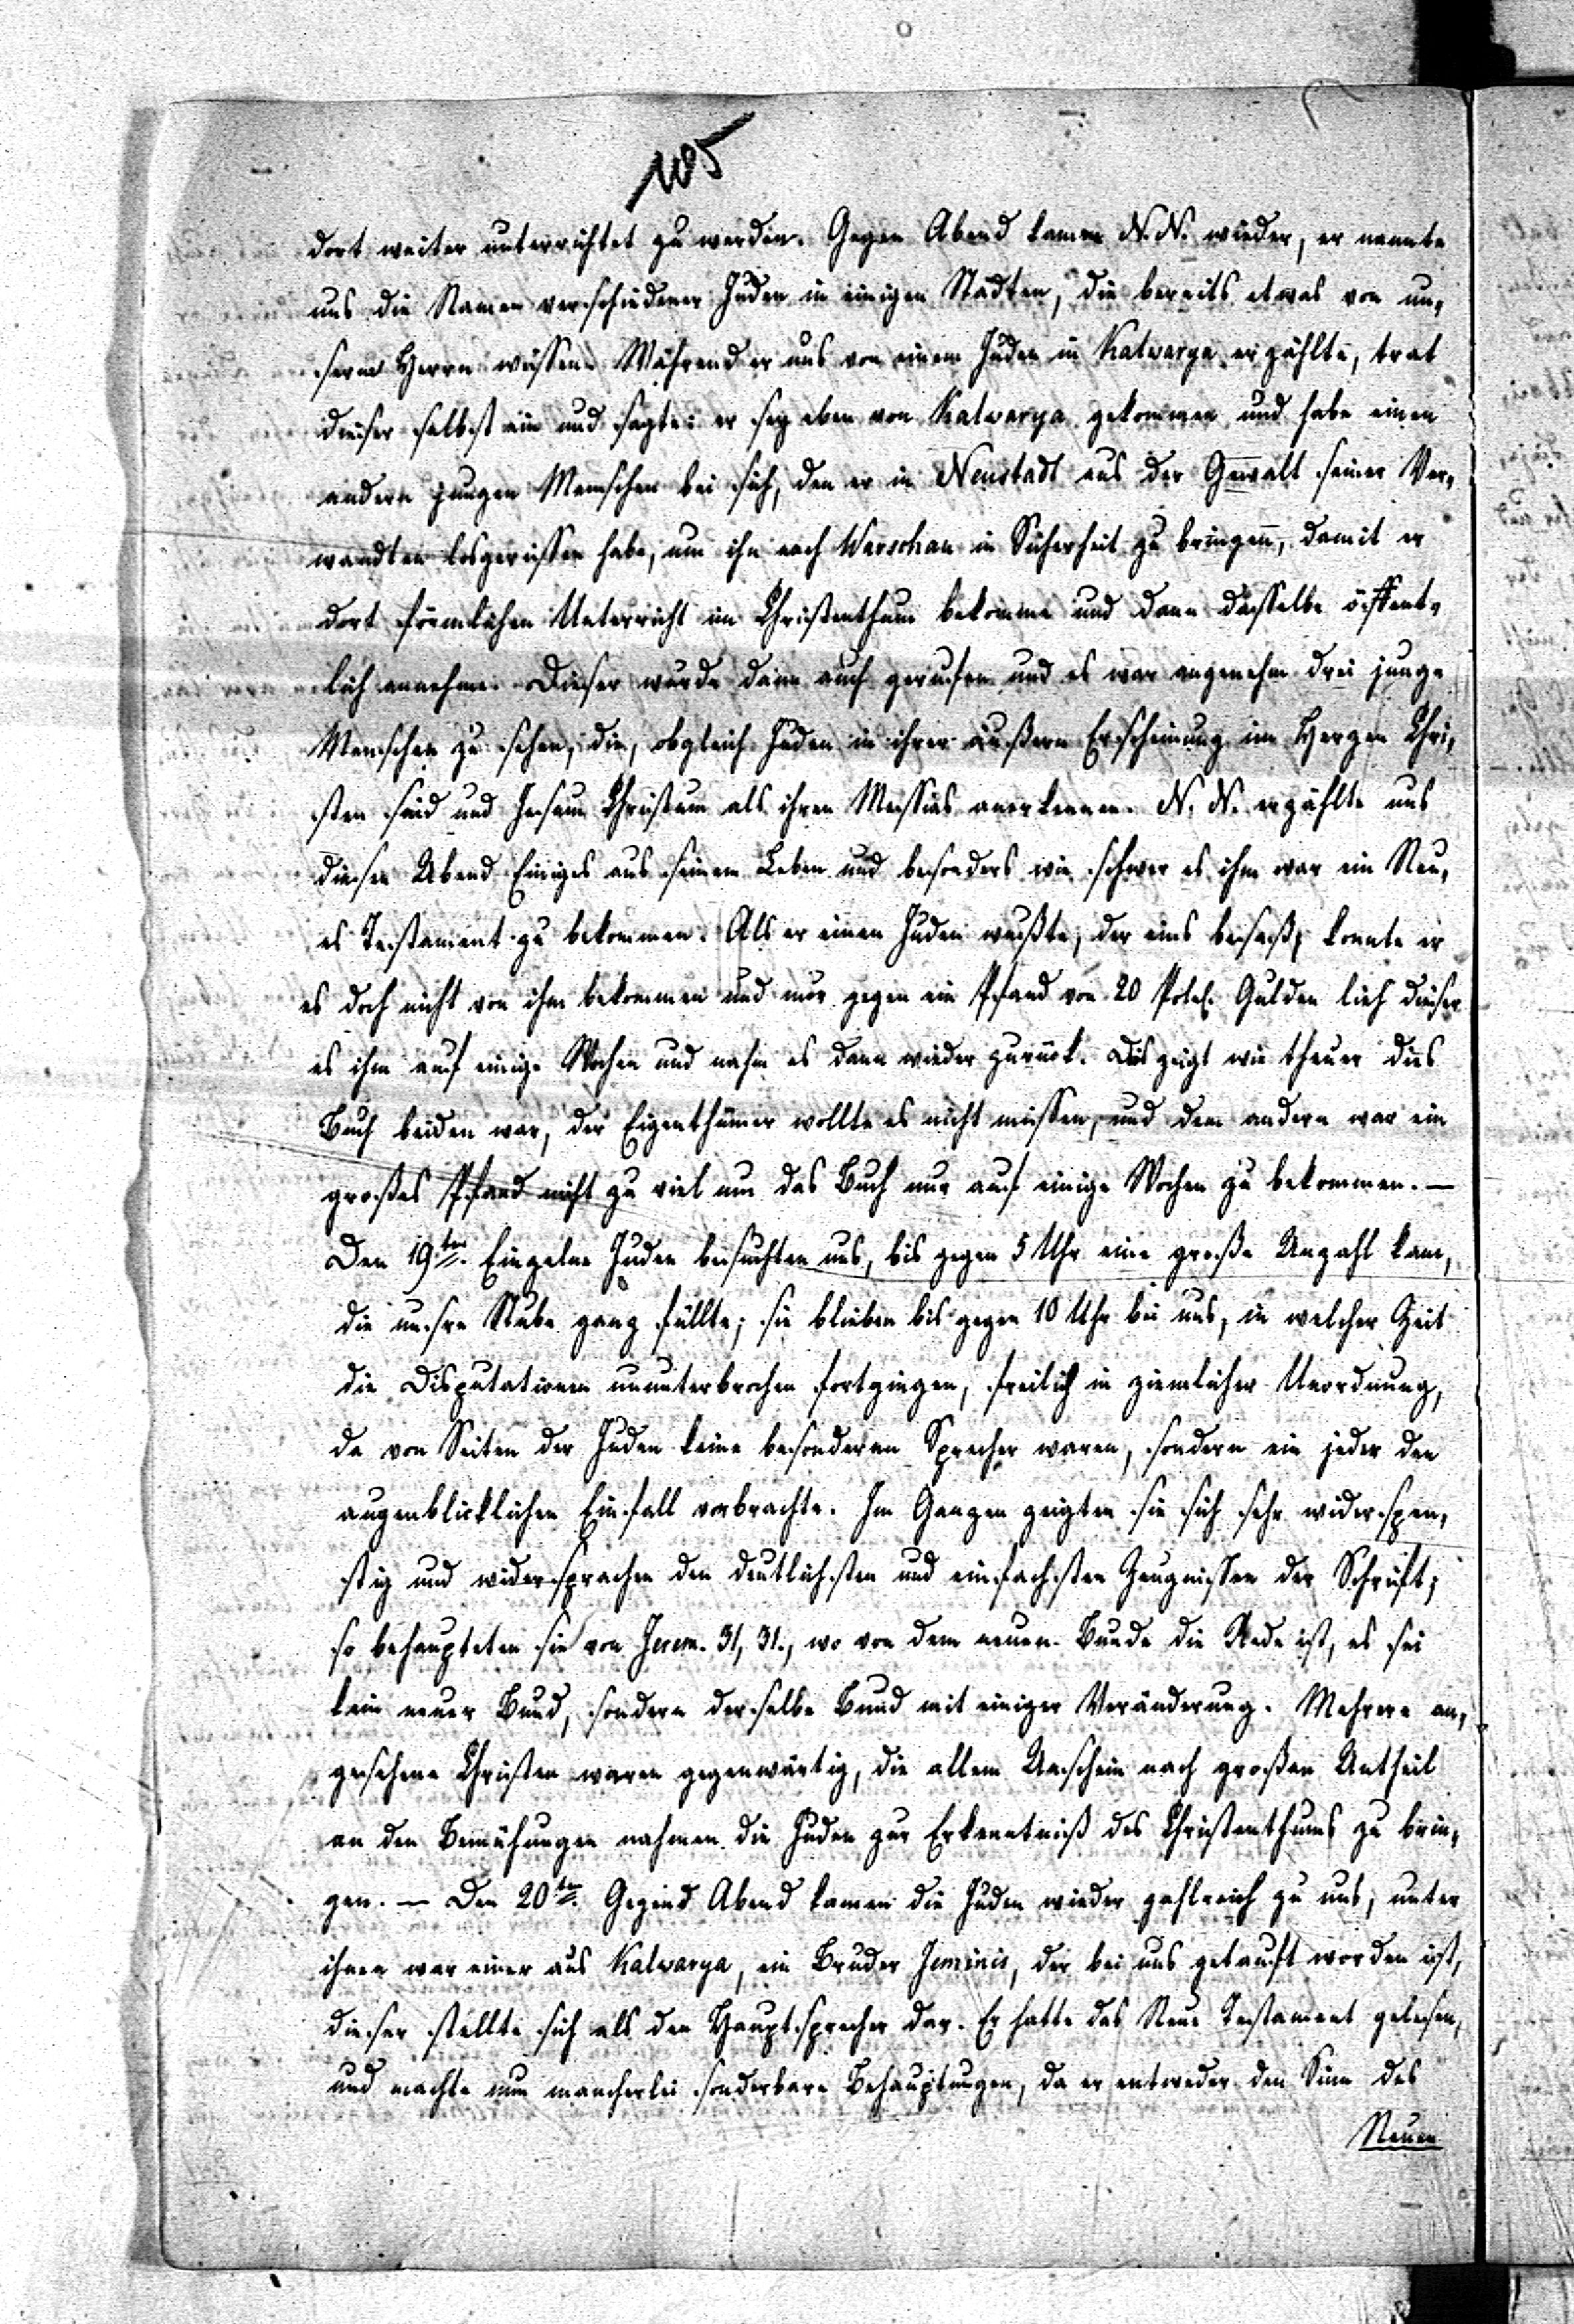 105
dort weiter unterrichtet zu werden. Gegen Abend kamen N. N. wieder, er nannte
uns die Namen verschiedener Juden in einigen Städten, die bereits etwas von un-
serm Herrn wissen. Während er uns von einem Juden in Kalwarya erzählte, trat
dieser selbst ein und sagte: er sey eben von Kalwarya gekommen und habe einen
andern jungen Menschen bei sich, den er in Neustadt aus der Gewalt seiner Ver-
wandten losgerissen habe, um ihn nach Warschau in Sicherheit zu bringen, damit er
dort förmlichen Unterricht im Christenthum bekomme und dann dasselbe öffent-
lich annehme. Dieser wurde dann auch gerufen und es war angenehm drei junge
Menschen zu sehen, die, obgleich Juden in ihrer äußern Erscheinung im Herzen Chri-
sten sind und Jesum Christum als ihren Messias anerkennen. N. N. erzählte uns
diesen Abend Einiges aus seinem Leben und besonders wie schwer es ihm war ein Neu-
es Testament zu bekommen. Als er einen Juden wußte, der eins besaß, konnte er
es doch nicht von ihm bekommen und nur gegen ein Pfand von 20 Poln. Gulden lieh dieser
es ihm auf einige Wochen und nahm es dann wieder zurück. Dies zeigt wie theuer dies
Buch beiden war, der Eigenthümer wollte es nicht missen, und dem andern war ein
großes Pfand nicht zu viel um das Buch nur auf einige Wochen zu bekommen. —
Den 19ten. Einzelne Juden besuchten uns, bis gegen 5 Uhr eine große Anzahl kam,
die unsre Stube ganz füllte; sie blieben bis gegen 10 Uhr bei uns, in welcher Zeit
die Disputationen ununterbrochen fortgingen, freilich in ziemlicher Unordnung,
da von Seiten der Juden keine besonderen Sprecher waren, sondern ein jeder den
augenblicklichen Einfall vorbrachte. Im Ganzen zeigten sie sich sehr widerspen-
stig und widersprachen den deutlichsten und einfachsten Zeugnissen der Schrift;
so behaupteten sie von Jerem. 31, 31., wo von dem neuen Bunde die Rede ist, es sei
kein neuer Bund, sondern derselbe Bund mit einiger Veränderung. Mehrere an-
gesehene Christen waren gegenwärtig, die allem Anschein nach großen Antheil
an den Bemühungen nahmen die Juden zur Erkenntniß des Christenthums zu brin-
gen. — Den 20ten. Gegend Abend kamen die Juden wieder zahlreich zu uns, unter
ihnen war einer aus Kalwarya, ein Bruder Jeminis, der bei uns getauft worden ist,
dieser stellte sich als den Hauptsprecher dar. Er hatte das Neue Testament gelesen,
und machte nun mancherlei sonderbare Behauptungen, da er entweder den Sinn des
Neuen